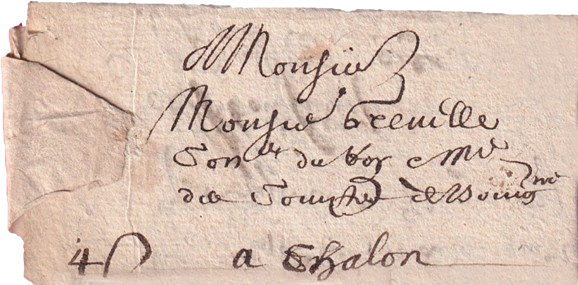 Monsieur
Monsieur Greville
Con.er du Roy e M.e
des Comptes de Bourg.ne
4 s a Chalon